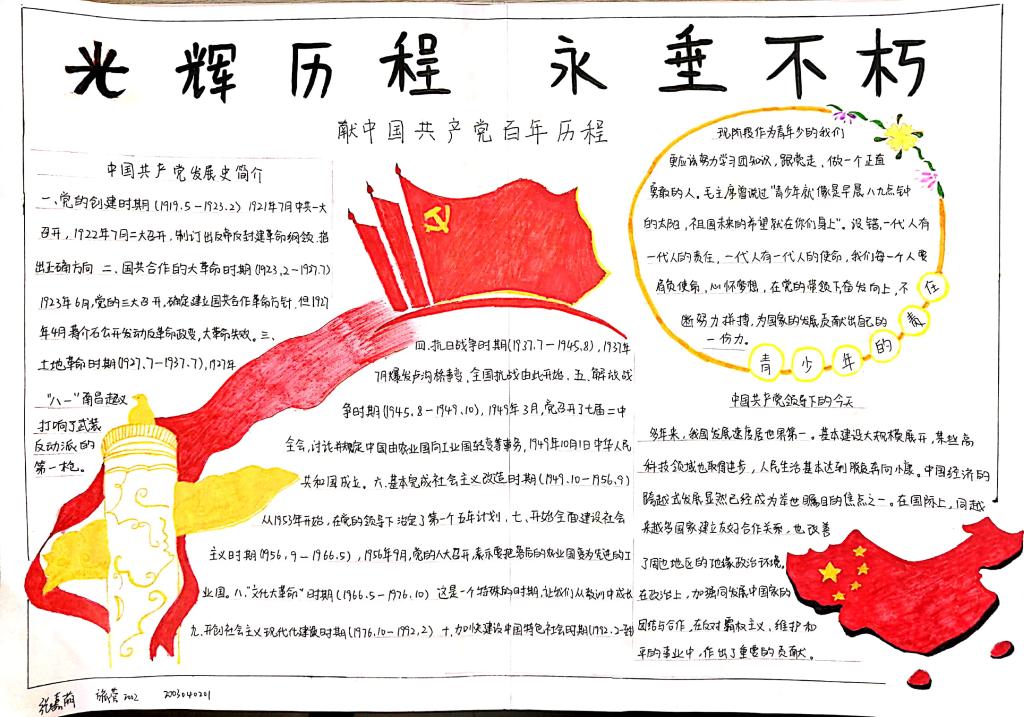 光辉历程 永垂不朽
献中国共产党百年历程
中国共产党发展史简介
一、党的创建时期(1919.5-1923.2) 1921年7月中共一大
召开,1922年7月二大召开,制订出反帝反封建革命纲领,指
出正确方向 二、国共合作的大革命时期(1923,2-1927.7)
1923年6月,党的三大召开,确定建立国共合作革命方针,但1927
年4月蒋介石公开发动反革命政变,大革命失败。三、
土地革命时期(1927.7-1937.7),1927年
“八一”南昌起义
打响了武装
反动派的
第一枪。
四、抗日战争时期(1937.7-1945.8),1937年
7月爆发卢沟桥事变,全国抗战由此开始、五、解放战
争时期(1945.8-1949.10),1949年3月,党召开了七届二中
全会,讨论并规定中国由农业国向工业国转变等事务,1949年10月1日中华人民
共和国成立。六、基本完成社会主义改造时期(1949.10-1956.9)
从1953年开始,在党的领导下治定了第一个五年计划、七、开始全面建设社会
主义时期(1956,9-1966.5),1956年9月,党的八大召开,表示要把落后的农业国变为先进的工
业国。八、“文化大革命”时期(1966.5-1976.10) 这是一个特殊的时期,让我们从教训中成长
九、开创社会主义现代化建设时期(1976.10-1992,2) 十、加快建设中国特色社会时期(1992.2-到
现阶段作为青年少的我们
更应该努力学习团知识,跟党走,做一个正直
勇敢的人。毛主席曾说过“青少年就像是早晨八九点钟
的太阳,祖国未来的希望就在你们身上”。没错,一代人有
一代人的责任,一代人有一代人的使命,我们每一个人要
肩负使命,心怀梦想,在党的带领下奋发向上,不
断努力拼搏,为国家的发展贡献出自己的
一份力。
青少年的责任
中国共产党领导下的今天
多年来,我国发展速度居世界第一。基本建设大规模展开,某些高
科技领域也取得进步,人民生活基本达到脱贫奔向小康。中国经济的
跨越式发展显然已经成为举世瞩目的焦点之一。在国际上,同越
来越多国家建立友好合作关系,也改善
了周边地区的地缘政治环境。
在政治上,加强同发展中国家的
团结与合作,在反对霸权主义、维护和
平的事业中,作出了重要的贡献。
2002 2003040201